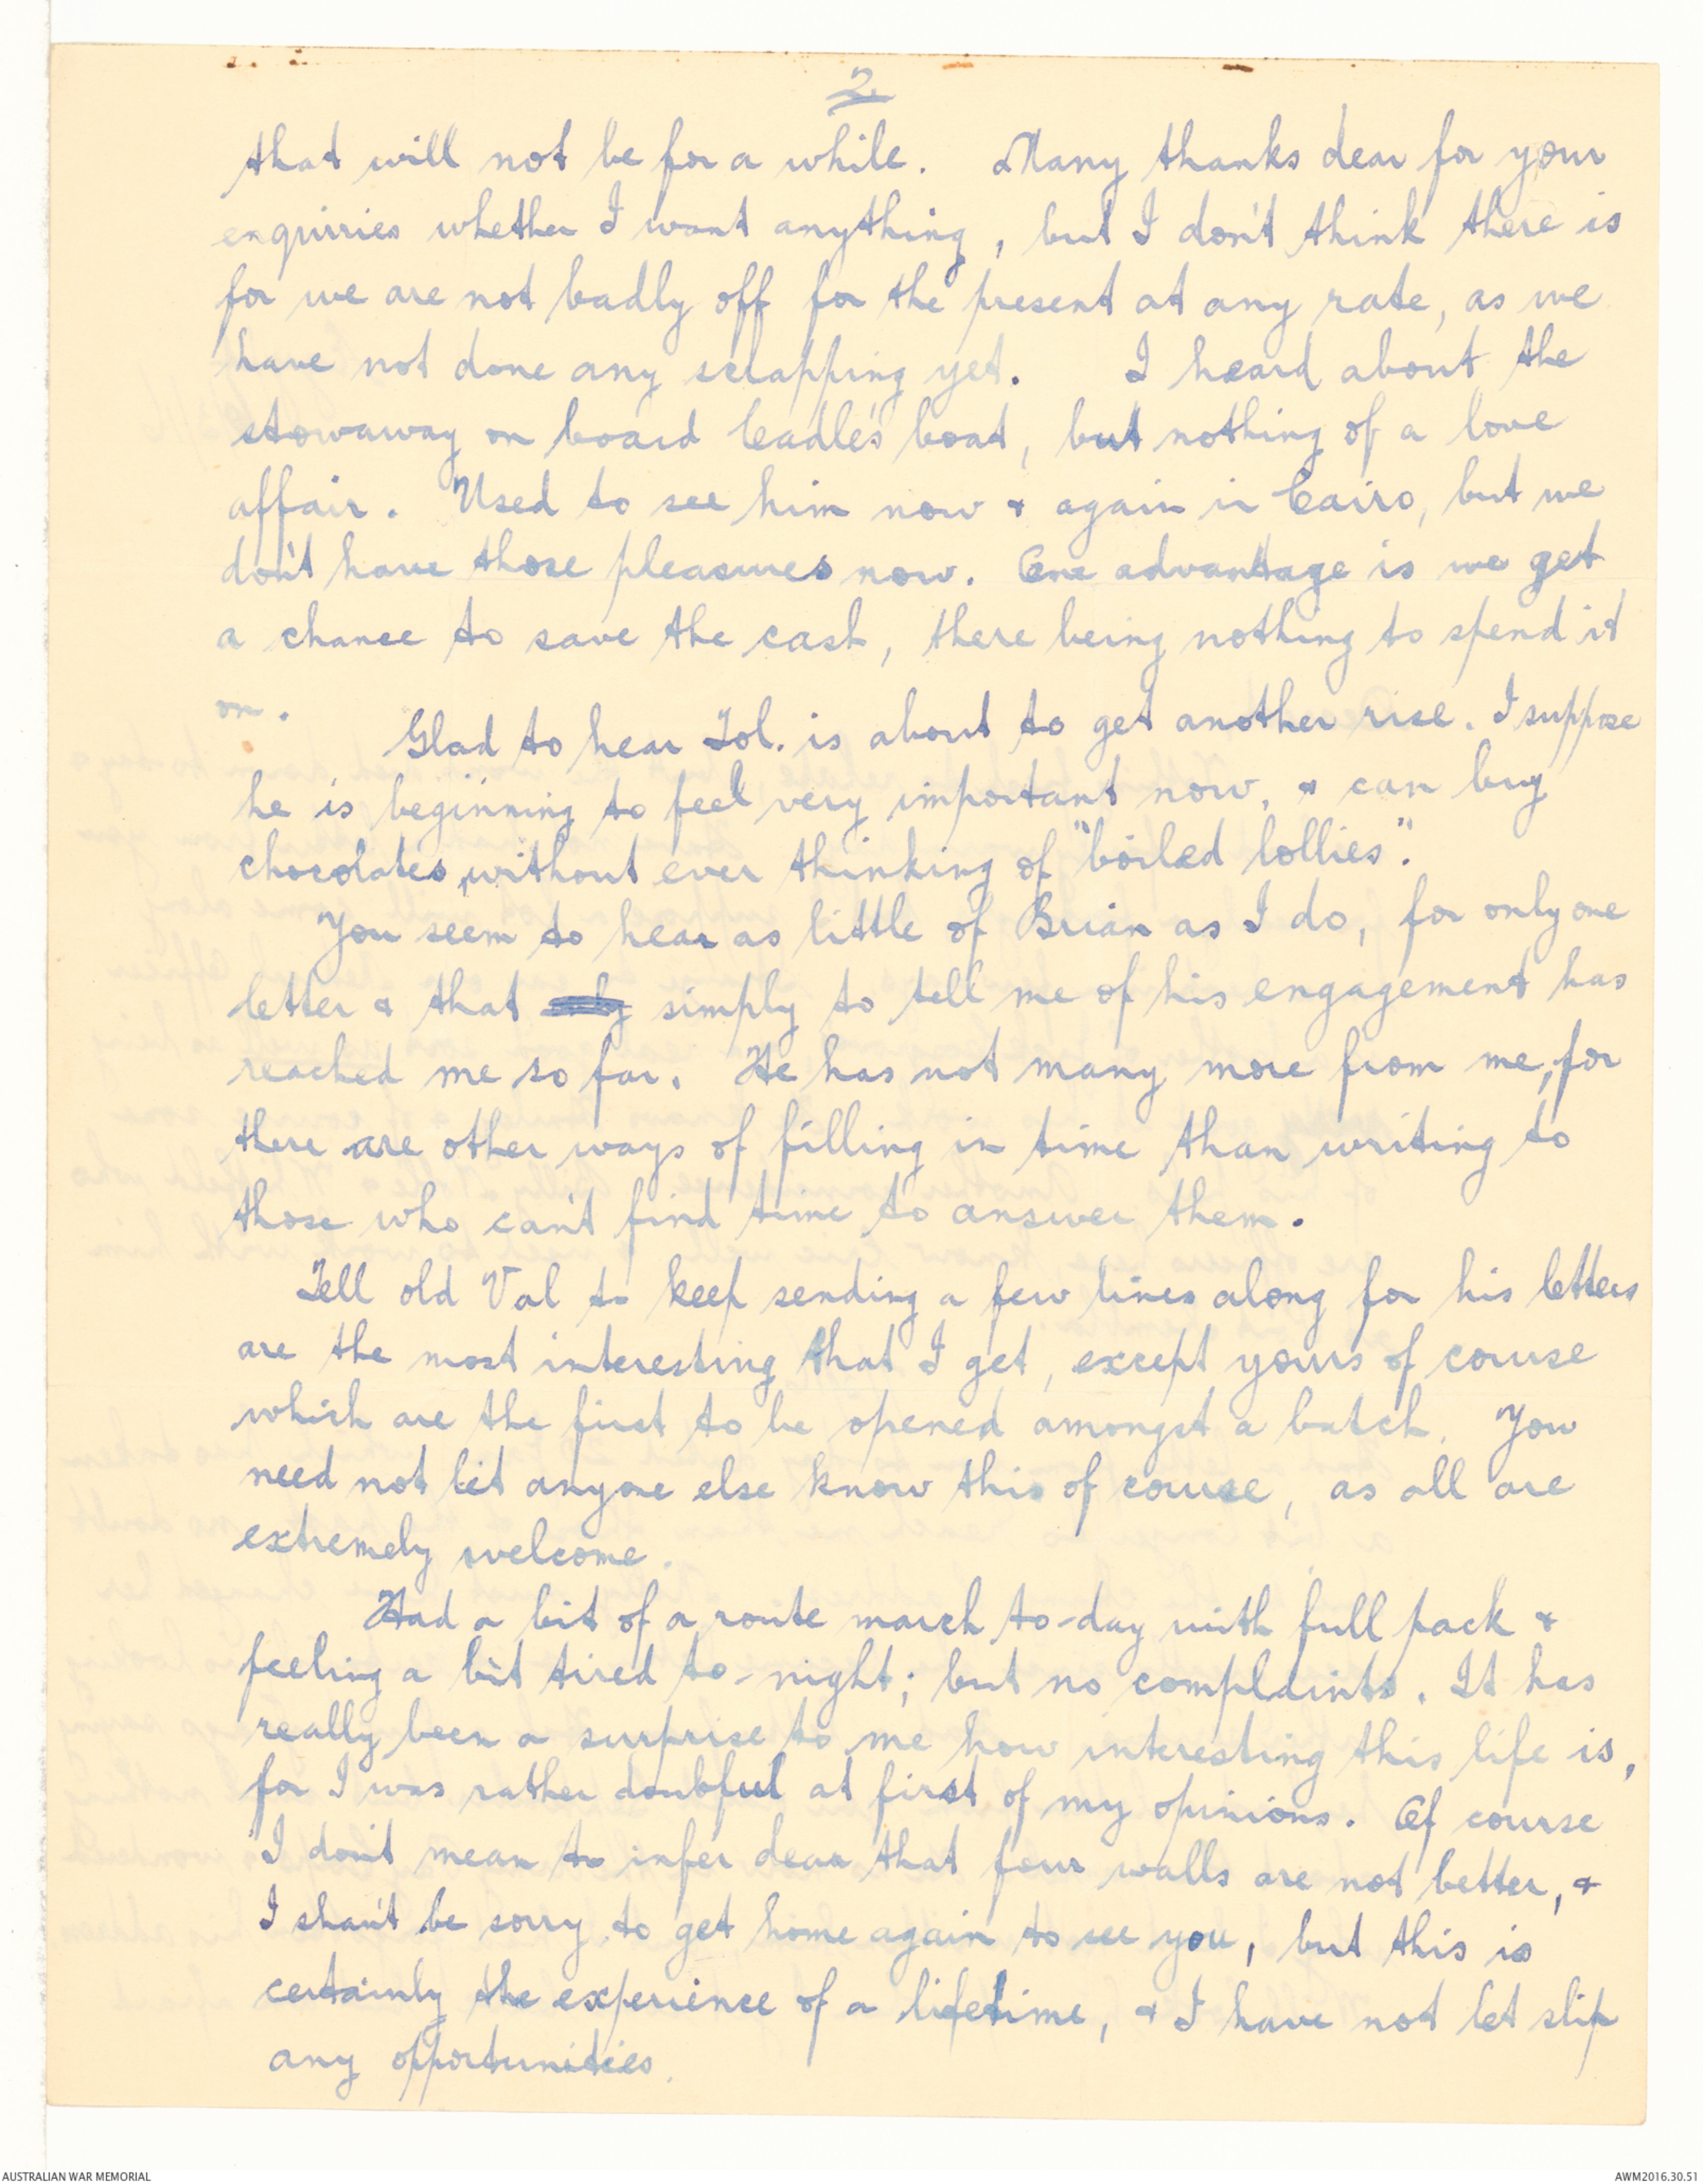 2
that will not be for a while. Many thanks dear for your
enquiries whether I want anything, but I don't think there is
for we are not badly off for the present at any rate, as we
have not done any scrapping yet. I heard about the
stowaway on board Cadle's boat, but nothing of a love
affair. Used to see him now & again in Cairo, but we
don't have those pleasures now. One advantage is we get
a chance to save the cash, there being nothing to spend it
on.
Glad to hear Tol. is about to get another rise. I suppose
he is beginning to feel very important now, & can buy
chocolates, without ever thinking of "boiled lollies".
You seem to hear as little of Brian as I do, for only one
letter & that simply to tell me of his engagement has
reached me so far. He has not many more from me, for
there are other ways of filling in time than writing to
those who can't find time to answer them.
Tell old Val to keep sending a few lines along for his letters
are the most interesting that I get, except yours of course
which are the first to be opened amongst a batch. You
need not let anyone else know this of course, as all are
extremely welcome.
Had a bit of a route march to-day with full pack &
feeling a bit tired to-night; but no complaints. It has
really been a surprise to me how interesting this life is,
for I was rather doubtful at first of my opinions. Of course
I don't mean to infer dear that four walls are not better, &
I shan't be sorry to get home again to see you, but this is
certainly the experience of a lifetime, & I have not let slip
any opportunities.
AUSTRALIAN WAR MEMORIAL
AWM2016.30.51